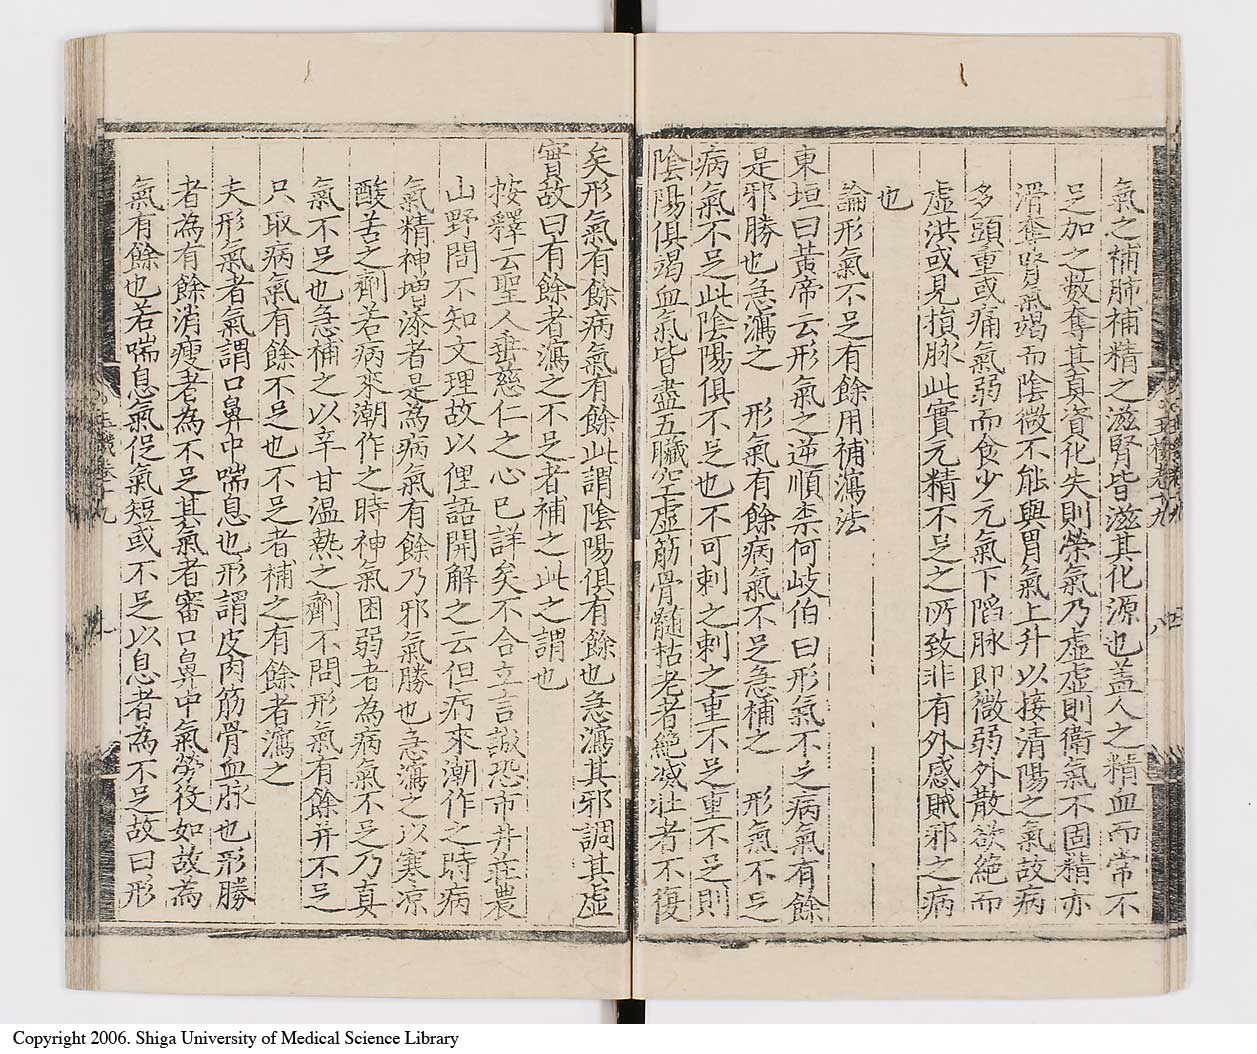 氣之補肺補精之滋腎皆滋其化源也盖人之精血而常不
足加之數奪其真資化失則榮氣乃虛虛則衛氣不固精亦
滑奪腎氣竭而陰微不能與胃氣上升以接清陽之氣故病
多頭重或痛氣弱而食少元氣下陷脉即微弱外散欲絶而
虛洪或見損脉此實元精不足之所致非有外感賊邪之病
也
論形氣不足有餘用補瀉法
東垣曰黃帝云形氣之逆順柰何岐伯曰形氣不足病氣有餘
是邪勝也急瀉之 形氣有餘病氣不足急補之 形氣不足
病氣不足此陰陽俱不足也不可刺之刺之重不足重不足則
陰陽俱竭血氣皆盡五臟空虛筋骨髓枯老者絶滅壯者不復
矣形氣有餘病氣有餘此謂陰陽俱有餘也急瀉其邪調其虛
實故曰有餘者瀉之不足者補之此之謂也
按釋云聖人垂慈仁之心已詳矣不合立言誠恐市井莊農
山野間不知文理故以俚語開解之云但病來潮作之時病
氣精神增添者是為病氣有餘乃邪氣勝也急瀉之以寒凉
酸苦之劑若病來潮作之時神氣困弱者為病氣不足乃真
氣不足也急補之以辛甘温熱之劑不問形氣有餘并不足
只取病氣有餘不足也不足者補之有餘者瀉之
夫形氣者氣謂口鼻中喘息也形謂皮肉筋骨血脉也形勝
者為有餘消瘦者為不足其氣者審口鼻中氣勞役如故為
氣有餘也若喘息氣促氣短或不足以息者為不足故曰形
玉機卷十九
Copyright 2006. Shiga University of Medical Science Library